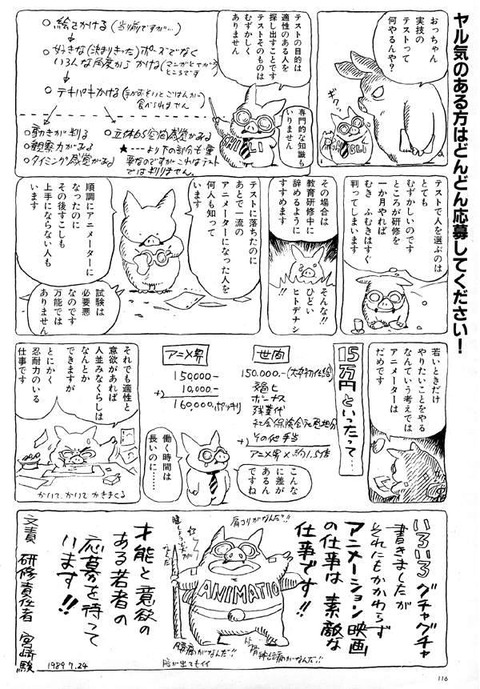 ヤル気のある方はどんどん応募してください!
おっちゃん
実技の
テストって
何やるんや?
GHIBLI
テストの目的は
適性のある人を
探し出すことです
テストそのものは
むずかしく
ありません
専門的な知識も
いりません
○絵をかける(当り前ですが…)
○好きな(決まりきった)ポーズでなく
いろんな角度からかける
○テキパキかける
○動きがわかる
○観察力がある
○タイミング感覚がある
○立体的空間感覚がある
テストで人を選ぶのは
とても
むずかしいのです
ところが研修を
一か月やれば
むき ふむきはすぐ
判ってしまいます
その場合は
教育研修中に
辞めるように
すすめます
そんな!!
ひどい
ヒトデナシ
!!
テストに落ちたのに
あとで一流の
アニメーターになった人を
何人も知って
います
順調にアニメーターに
なったのに
その後すこしも
上手にならない人も
います
試験は
必要悪
なのです
万能では
ありません
若いときだけ
やりたいことをやる
なんていう考えでは
アニメーターは
だめです
15万円といったって…
世間
150,000.-(大卒初任給)
ボーナス
残業代
+)その他手当
アニメ界×約1.5倍
アニメ界
150,000-
+) 10,000-
160,000.ポッキリ
こんな
に差が
あるん
ですね
働く時間は
長いのに……
それでも適性と
意欲があれば
なんとか
人並みなくらしは
できますが
とにかく
忍耐力のいる
仕事です
かいて、かいて かきまくる
いろいろ グチャグチャ
書きましたが
それにもかかわらず
アニメーション映画
の仕事は 素敵な
仕事です!!
肩コリがなんだ!!
ANIMATIO
腰痛がなんだ!!
才能と意欲の
ある若者の
応募を待って
います!!
文責 研修責任者 宮崎駿
1989.7.24
116